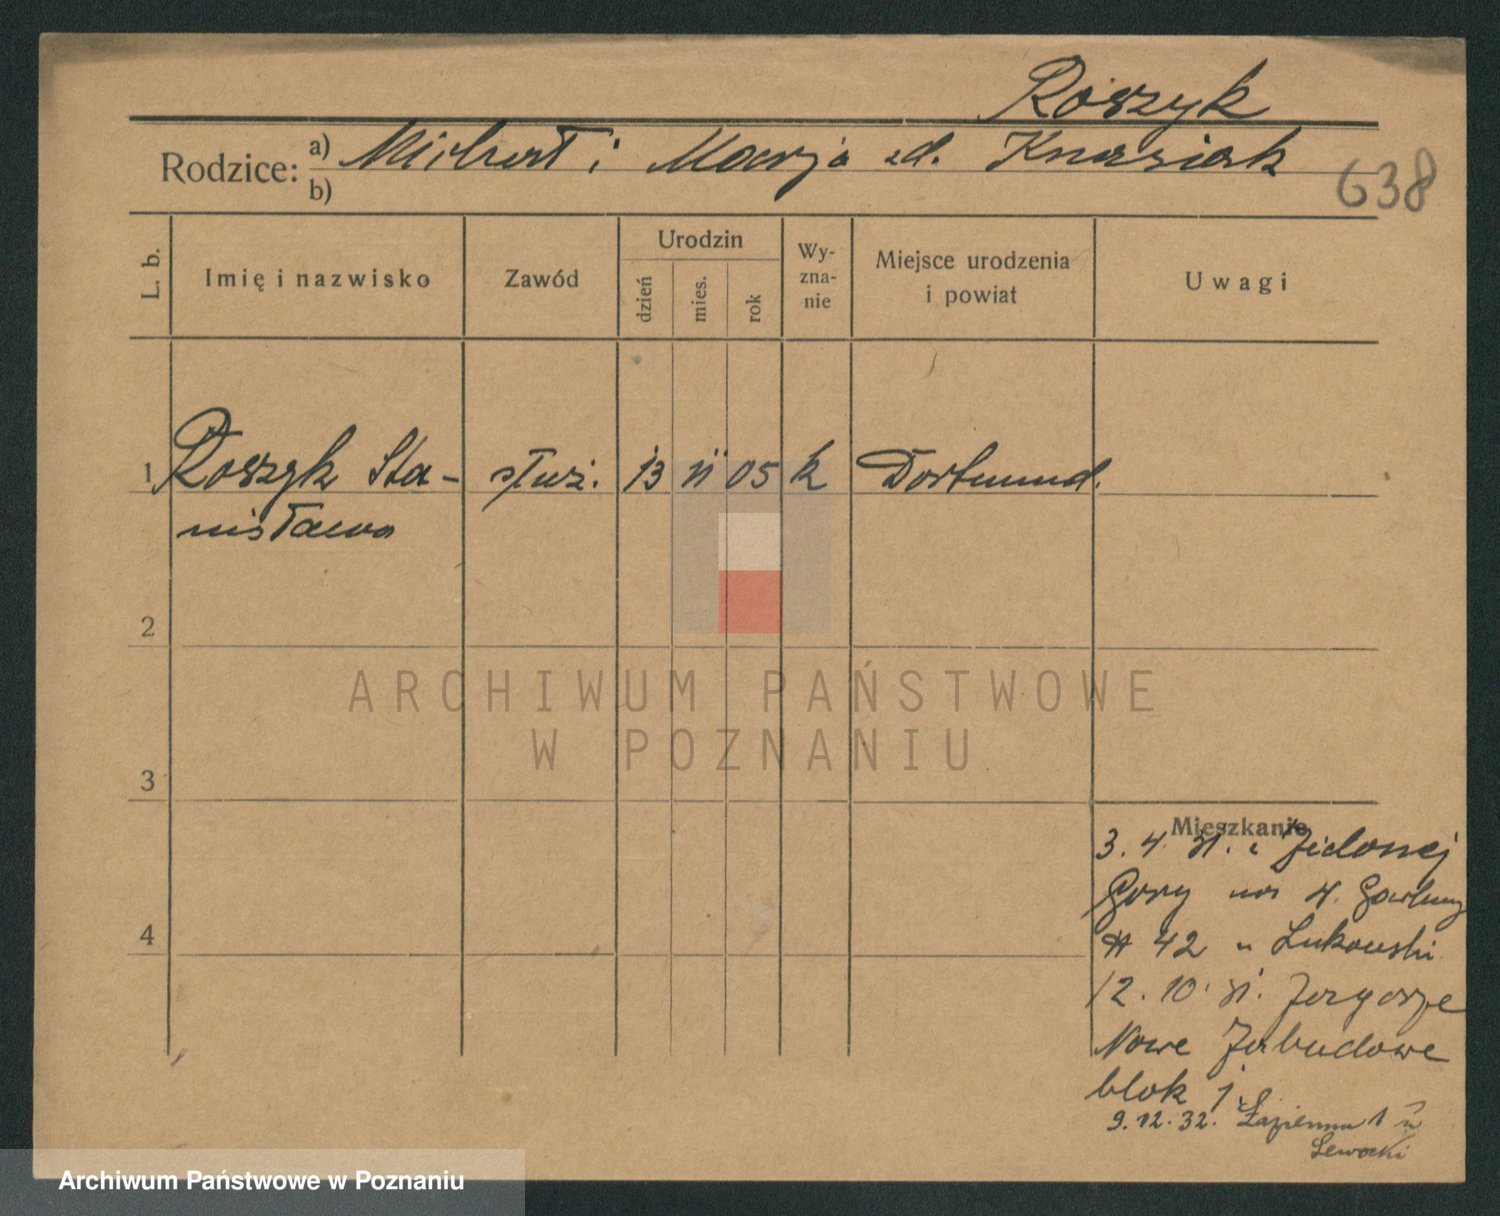 Roszyk
Rodzice: a) Michał i Marja zd. Knasiak
b)
638
L. b.
Imię i nazwisko
Zawód
Urodzin
dzień
mies.
rok
Wy-
zna-
nie
Miejsce urodzenia
i powiat
Uwagi
1 Roszyk Sta- służ. 13 VI 05 k Dortmund.
nisława
2
3
4
ARCHIWUM PAŃSTWOWE
W POZNANIU
Mieszkanie
3. 4. 31. z Zielonej
Góry na
42 u Lukowski
12. 10. 31. Zagorze
Nowe Zabudowe
blok 1
9. 12. 32. Łazienna 1 u
Lewocki
Archiwum Państwowe w Poznaniu